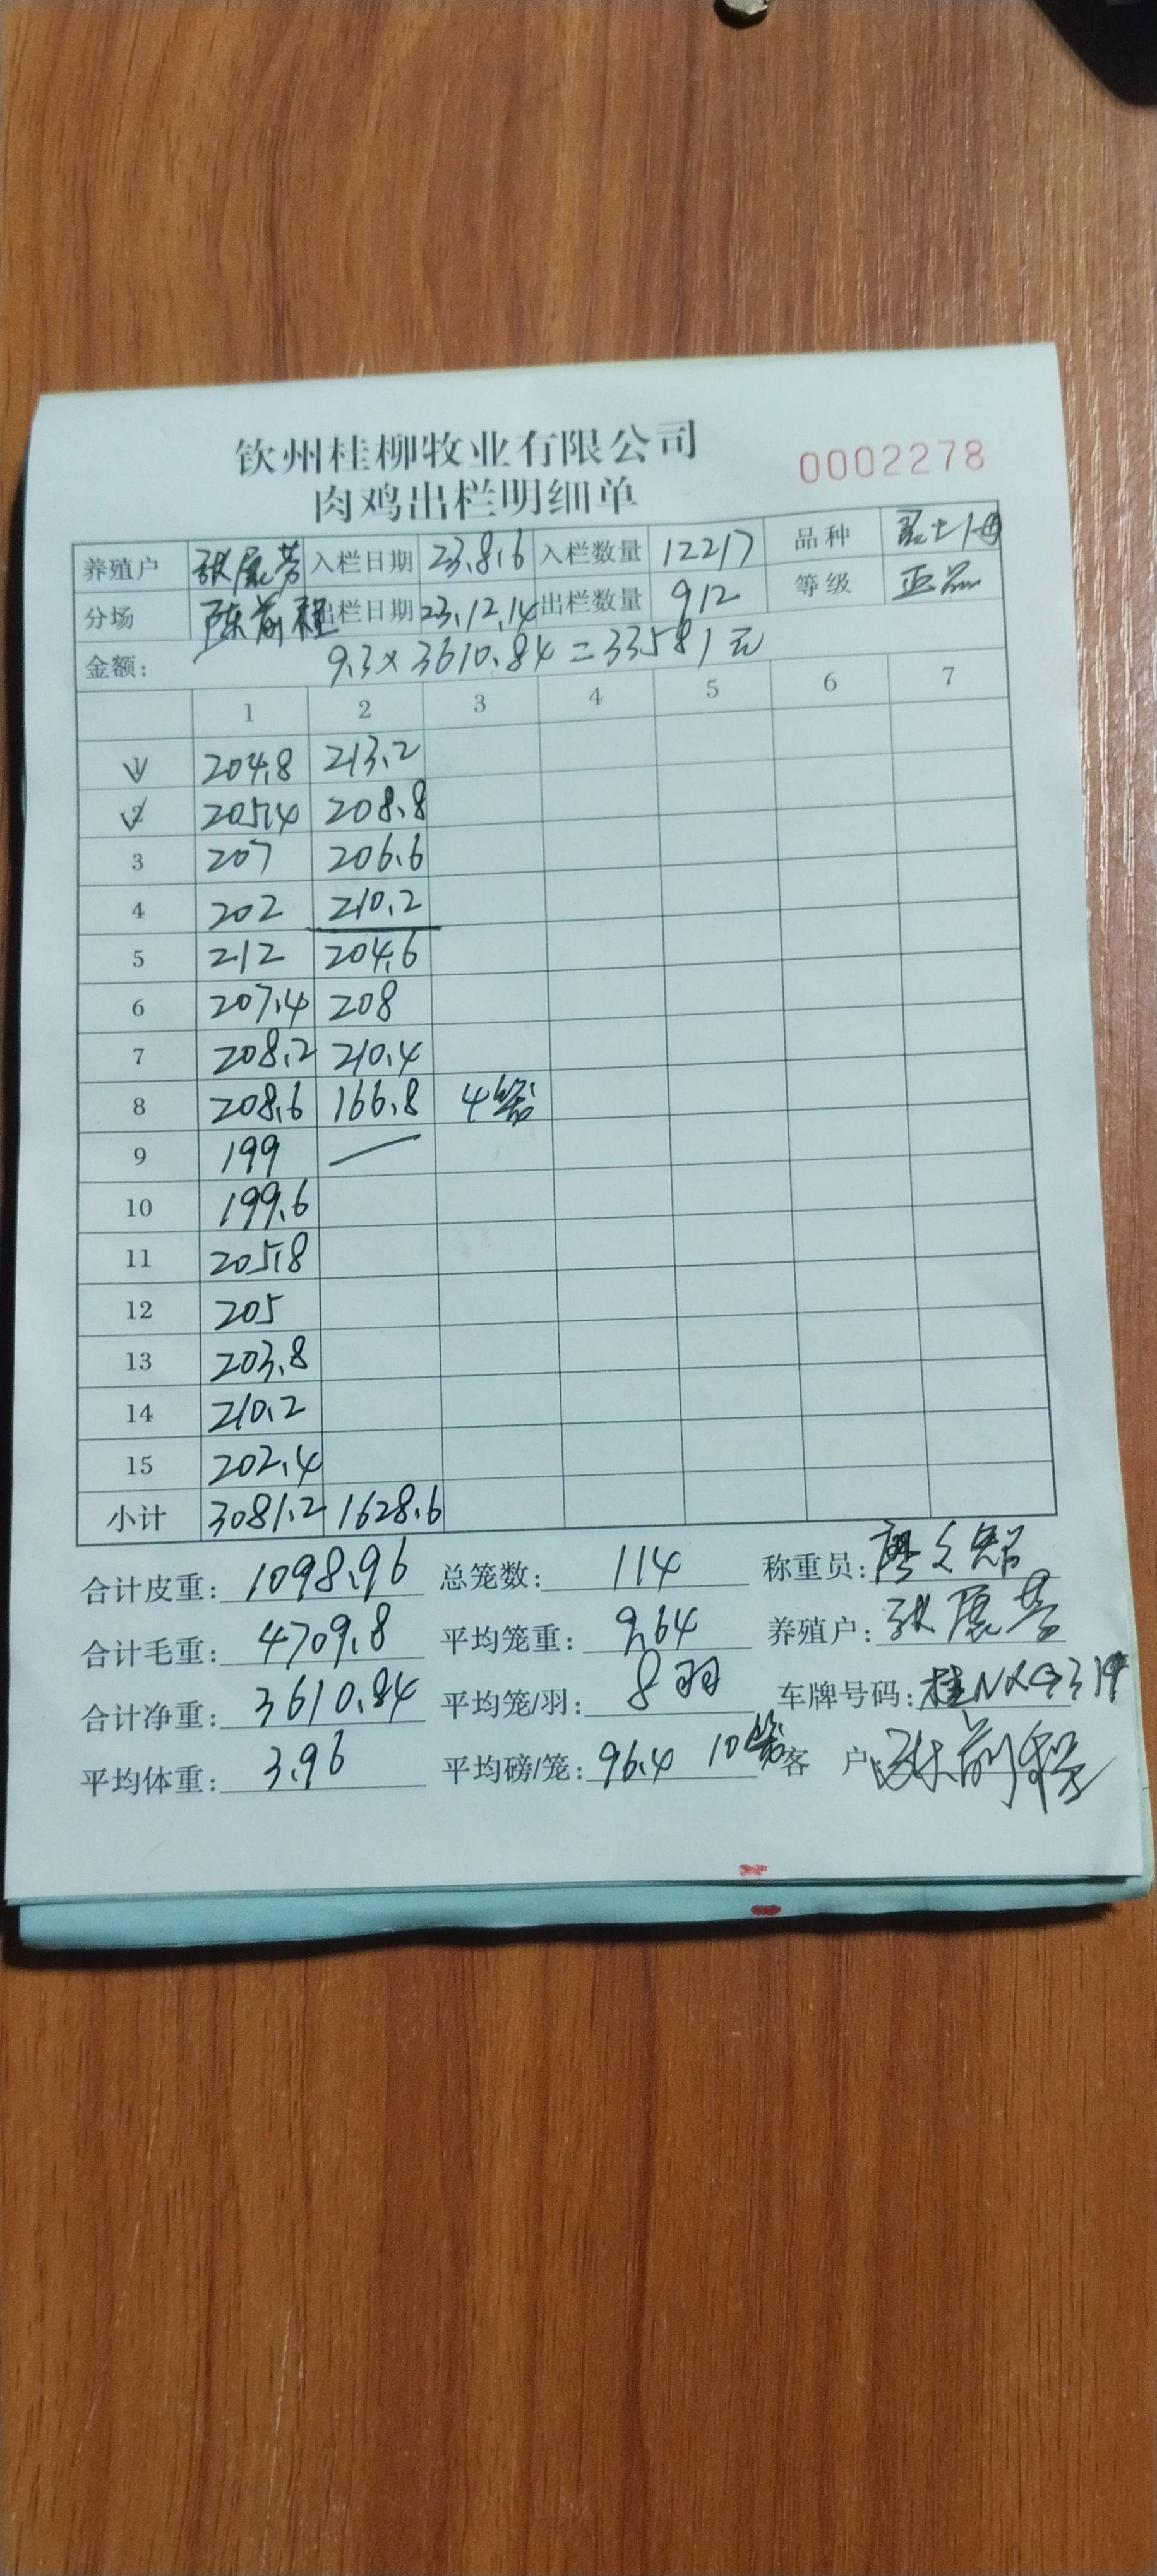 钦州桂柳牧业有限公司
0002278
肉鸡出栏明细单
养殖户 张展芳 入栏日期 23.8.6 入栏数量 12217 品种
分场 陈前程 出栏日期 23.12.14 出栏数量 912 等级 正品
金额： 9.3×3610.84=33581元
1 2 3 4 5 6 7
1 204.8 213.2
2 205.4 208.8
3 207 206.6
4 202 210.2
5 212 204.6
6 207.4 208
7 208.2 210.4
8 208.6 166.8 4笼
9 199
10 199.6
11 205.8
12 205
13 203.8
14 210.2
15 202.4
小计 3081.2 1628.6
合计皮重：1098.96 总笼数：114 称重员：廖
合计毛重：4709.8 平均笼重：9.64 养殖户：张展芳
合计净重：3610.84 平均笼/羽：8羽 车牌号码：
平均体重：3.96 平均磅/笼：96.4 10笼 客 户：陈前程